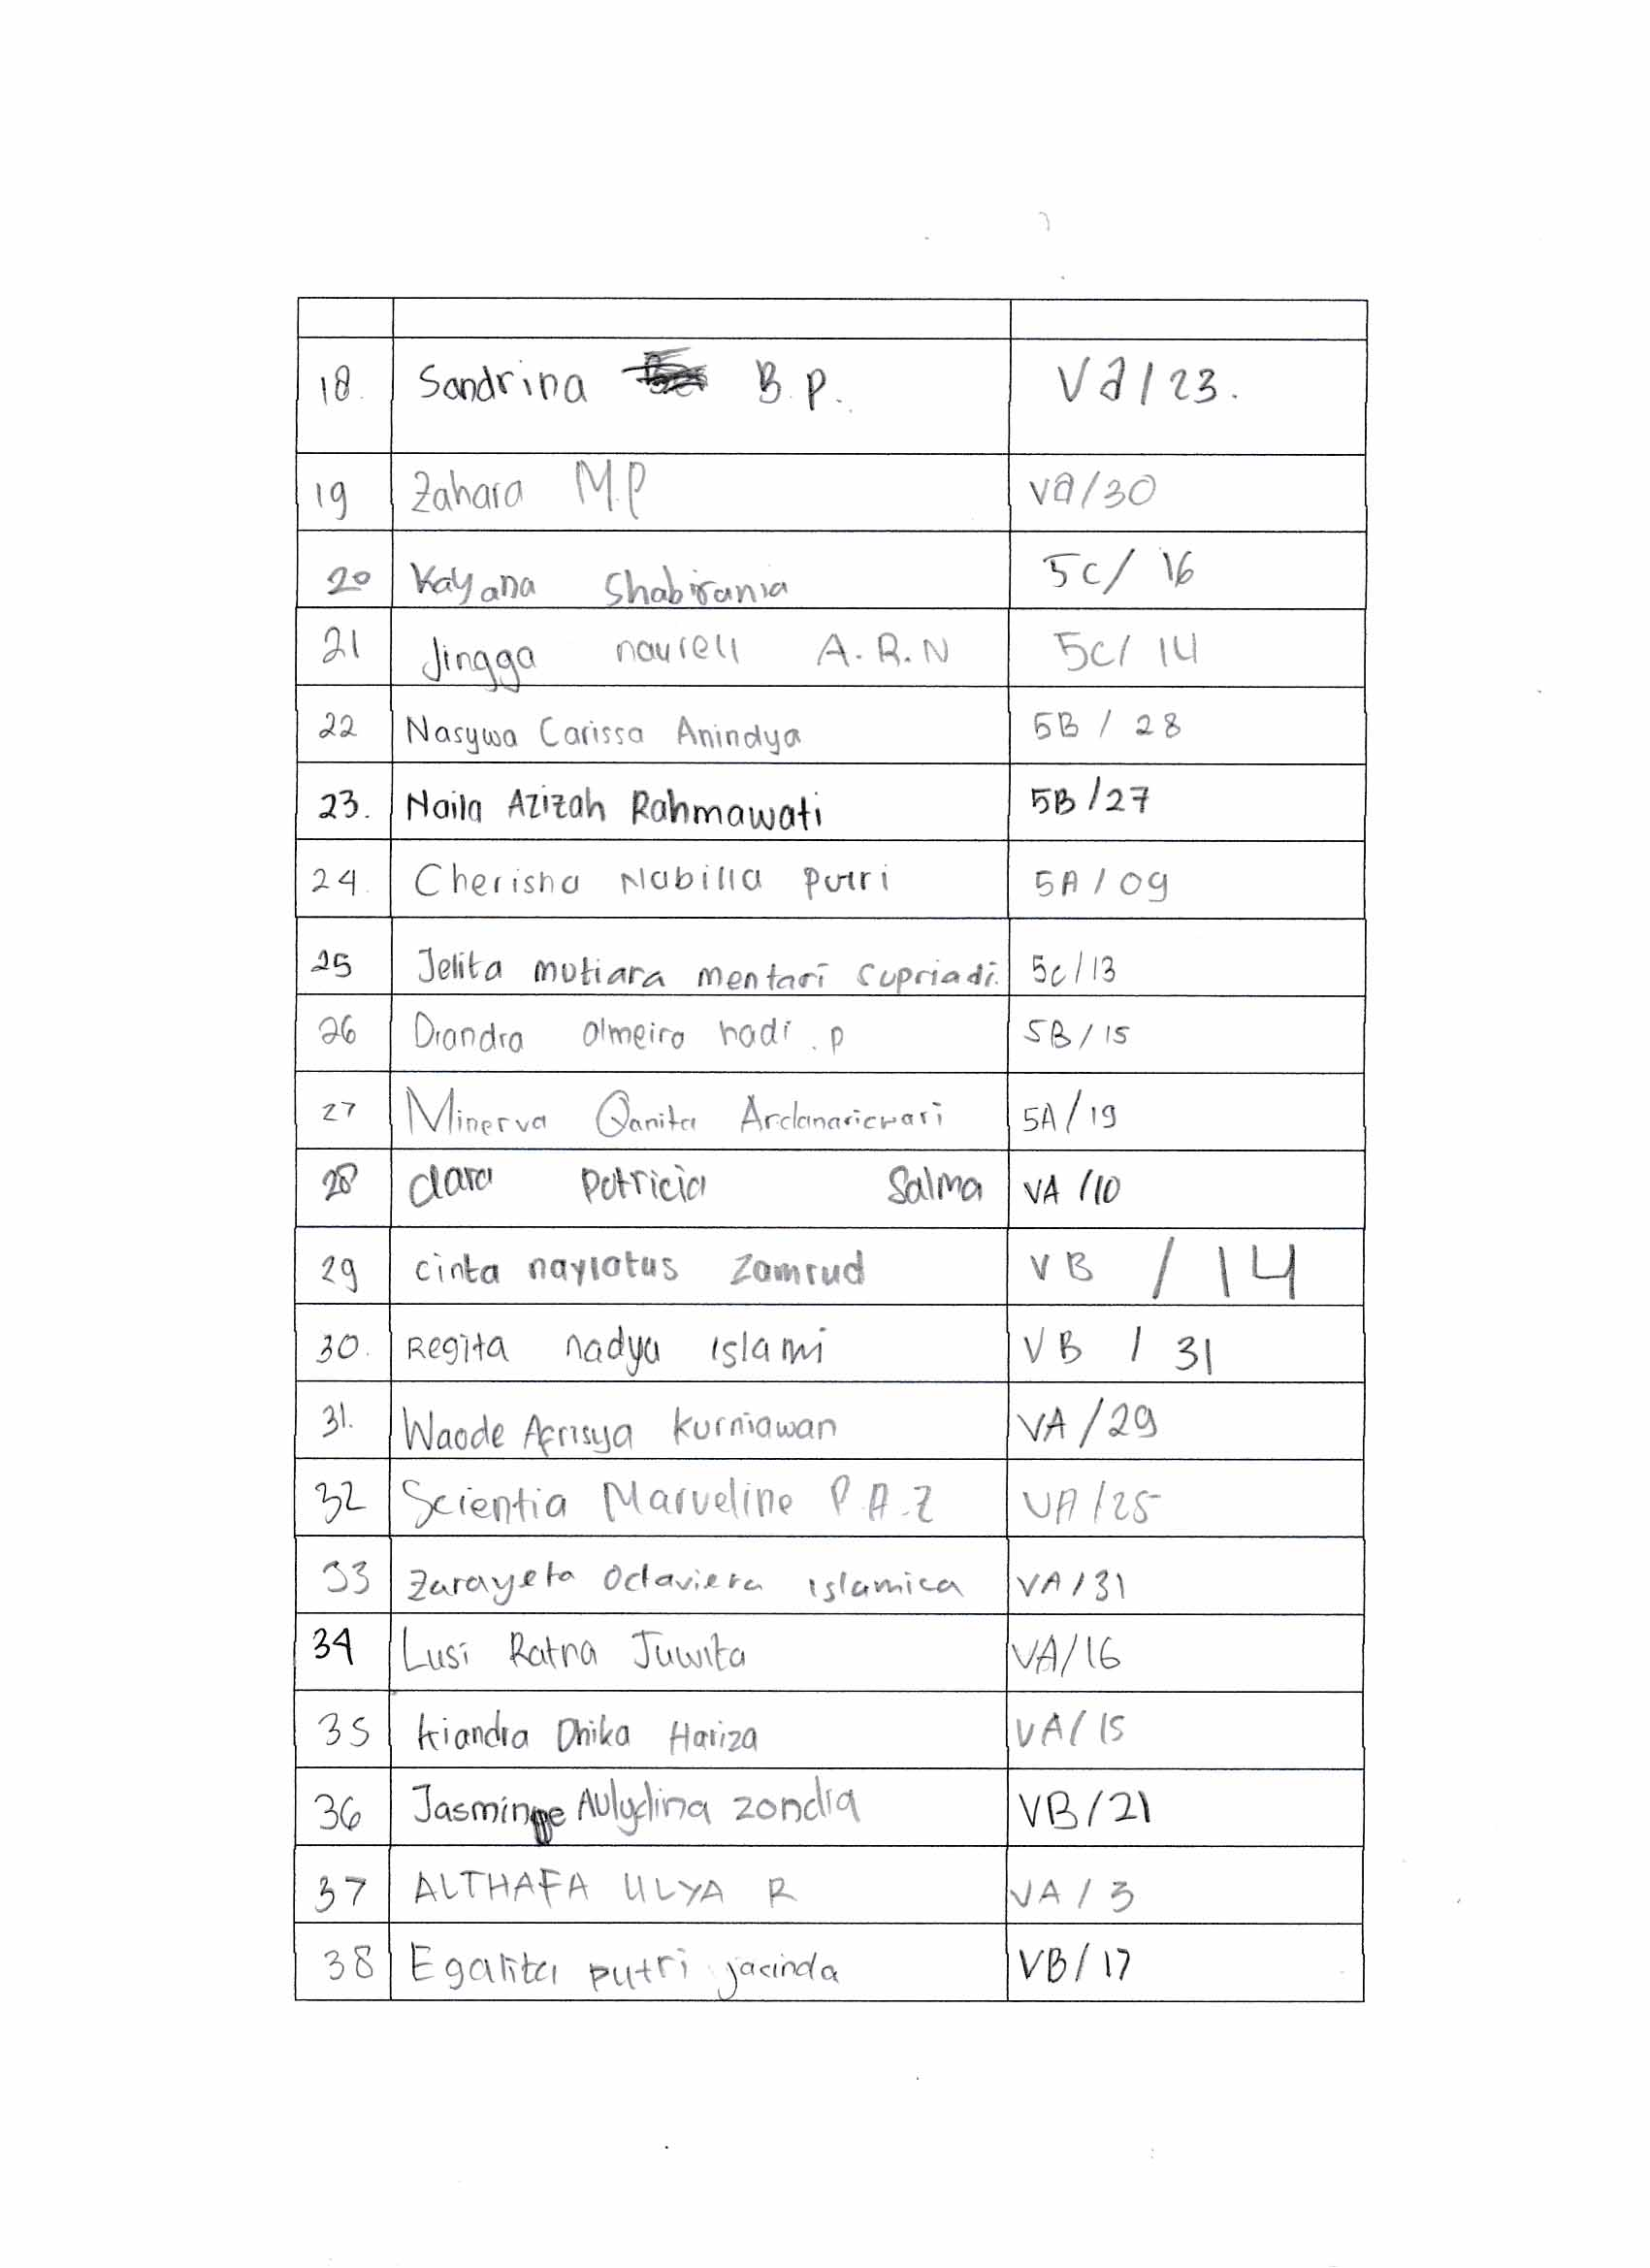 18. Sandrina B.P. Va/23.
19 Zahara M.P Va/30
20 Kayana Shabirania 5C/ 16
21 Jingga naurell A.R.N 5C/ 14
22 Nasywa Carissa Anindya 5B / 28
23. Naila Azizah Rahmawati 5B/27
24. Cherisha Nabilla Putri 5A/09
25 Jelita mutiara mentari Supriadi. 5c/13
26 Diandra almeira hadi .p 5B/15
27 Minerva Qanita 5A/19
28 Clara Patricia Salma VA/10
29 cinta naylatus Zamrud VB / 14
30. Regita nadya islami VB / 31
31. Waode Afrisya Kurniawan VA/29
32 Scientia Marveline P.A.Z VA/25
33 Octaviera islamica VA/31
34 Lusi Ratna Juwita VA/16
35 Kiandra Dhika Hariza VA/15
36 Jasmine Aulydina zondia VB/21
37 ALTHAFA ULYA R VA/3
38 Egalita putri jacinda VB/17